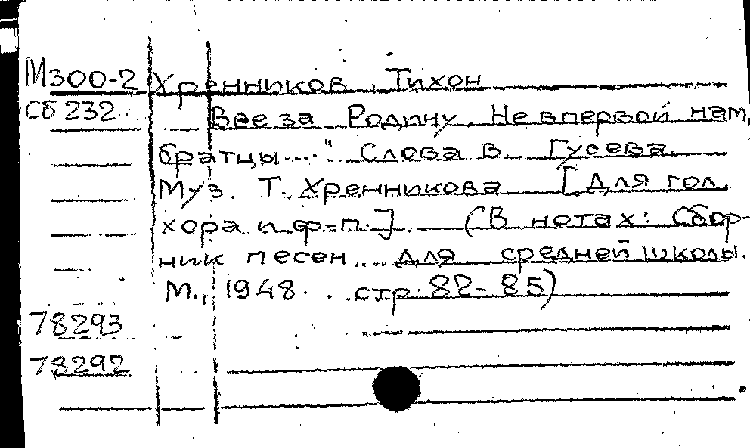 М300-2 Хренников, Тихон
Сб 232 Все за Родину. Не впервой нам,
братцы...." Слова В. Гусева.
Муз. Т. Хренникова [Для гол.
хора и ф-п.] (В нотах: Сбор-
ник песен... для средней школы.
М., 1948. стр. 82-85)
78293
78292